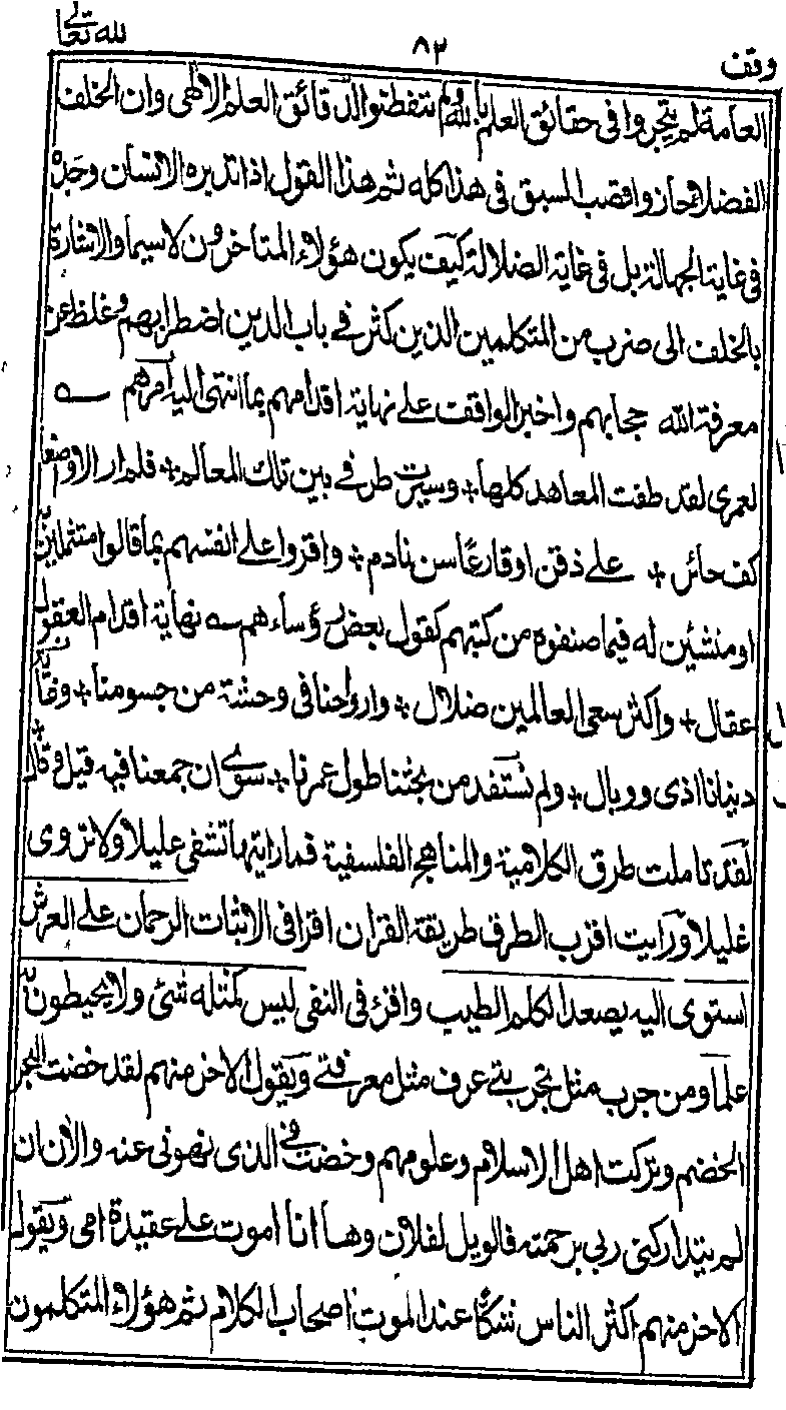 وقف
٨٢
لله تعالى
العامة لم يتبحروا فى حقائق العلم بالله ولم يتفطنوا الدقائق العلم الالهى وان الخلف
الفضلاء حازوا قصب السبق فى هذا كله ثم هذا القول اذا تدبره الانسان وجده
فى غاية الجهالة بل فى غاية الضلالة كيف يكون هؤلاء المتأخرون لا سيما والاشارة
بالخلف الى ضرب من المتكلمين الذين كثر فى باب الدين اضطرابهم وغلظ عن
معرفة الله حجابهم واخبر الواقف على نهاية اقدامهم بما انتهى اليه امرهم
لعمرى لقد طفت المعاهد كلها + وسيرت طرفى بين تلك المعالم + فلم ار الا واضعا
كف حائر + على ذقن او قارعا سن نادم + واقروا على انفسهم بما قالوا متمثلين به
او منشئين له فيما صنفوه من كتبهم كقول بعض رؤساءهم نهاية اقدام العقول
عقال + واكثر سعى العالمين ضلال + وارواحنا فى وحشة من جسومنا + وغاية
دنيانا اذى ووبال + ولم نستفد من بحثنا طول عمرنا + سوى ان جمعنا فيه قيل وقال +
لقد تاملت طرق الكلامية والمناهج الفلسفية فما رايتها تشفى عليلا ولا تروى
غليلا ورايت اقرب الطرق طريقة القران اقرا فى الاثبات الرحمان على العرش
استوى اليه يصعد الكلم الطيب واقرء فى النفى ليس كمثله شئ ولا يحيطون به
علما ومن جرب مثل تجربتى عرف مثل معرفتى ويقول الاخر منهم لقد خضت البحر
الخضم وتركت اهل الاسلام وعلومهم وخضت فى الذى نهونى عنه والان ان
لم يتداركنى ربى برحمته فالويل لفلان وها انا اموت على عقيدة امى ويقول
الاخر منهم اكثر الناس شكا عند الموت اصحاب الكلام ثم هؤلاء المتكلمون